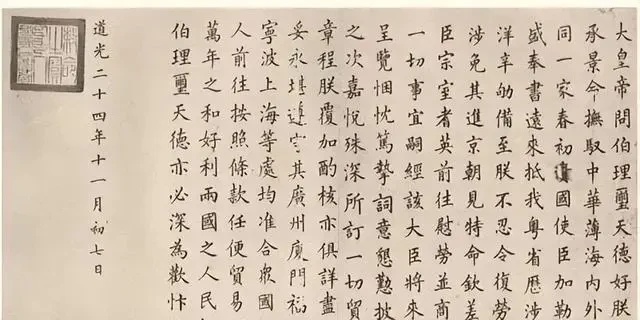 大皇帝問伯理璽天德好朕
承景命撫馭中華薄海內外
同一家春初國使臣加勒
盛奉書遠來抵我粵省歷涉
洋辛備至朕不忍令復勞
涉免其進京朝見特命欽差
臣宗室耆英前往慰勞並商
一切事宜嗣經該大臣將來
呈覽悃忱篤摯詞意懇懃披
之次嘉悅殊深所訂一切貿
章程朕覆加酌核亦俱詳盡
妥永堪遵守其廣州廈門福
寧波上海等處均准合眾國
人前往按照條款任便貿易
萬年之和好利兩國之人民
伯理璽天德亦必深為歡忭
道光二十四年十一月初七日